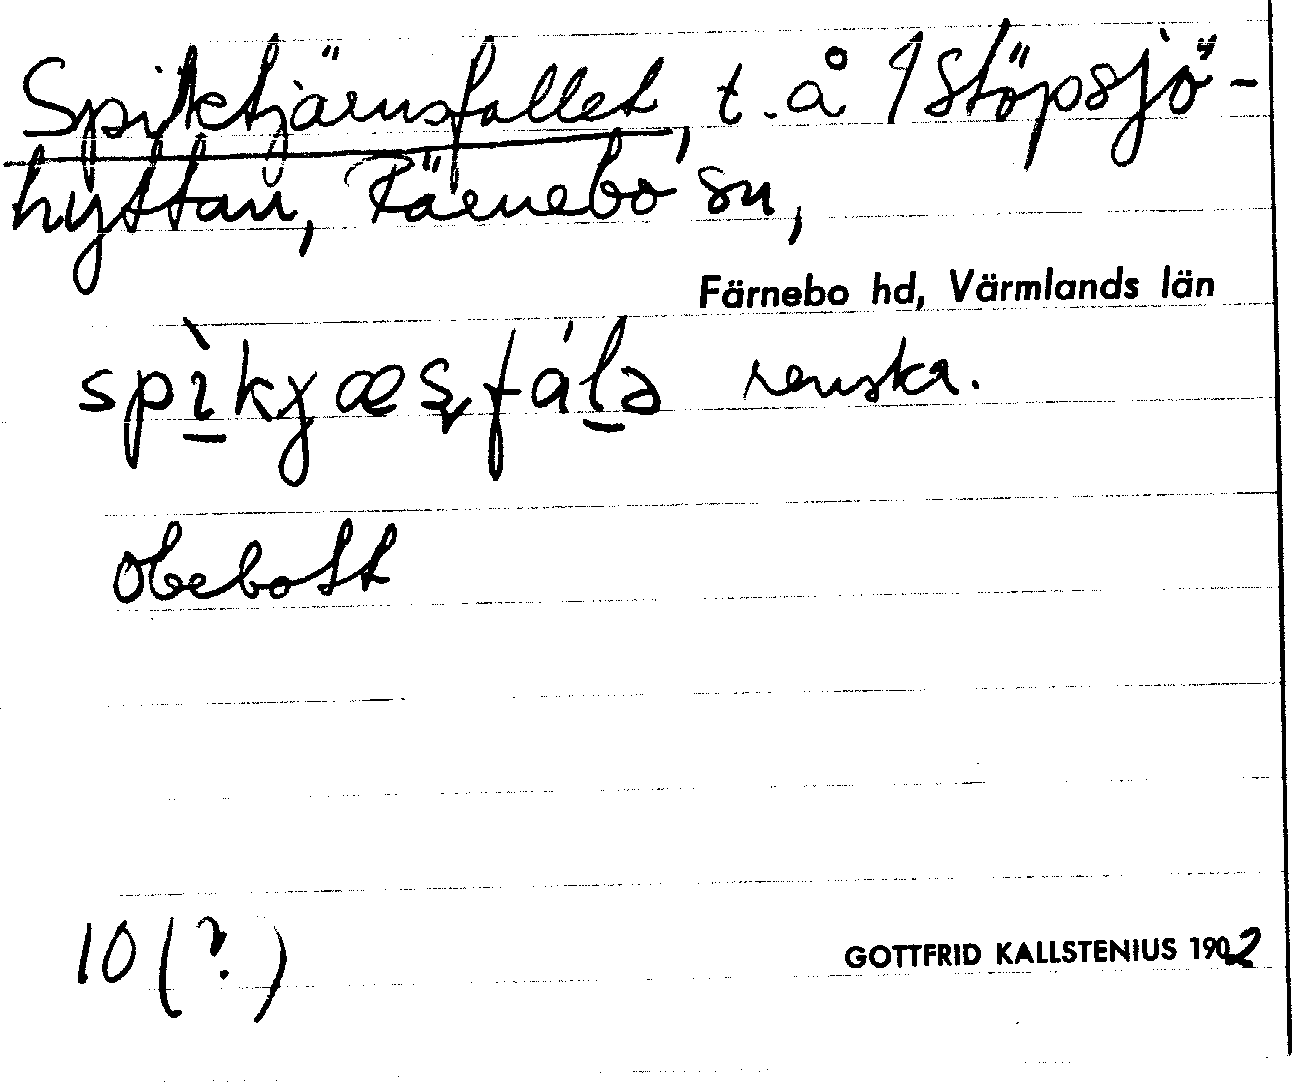 Spiktjärnsfallet, t. å 1 Stöpsjö-
hyttan, Färnebo sn,
Färnebo hd, Värmlands län
spìkɟæʂfálə renskr.
obebott
10 (?)
GOTTFRID KALLSTENIUS 1902